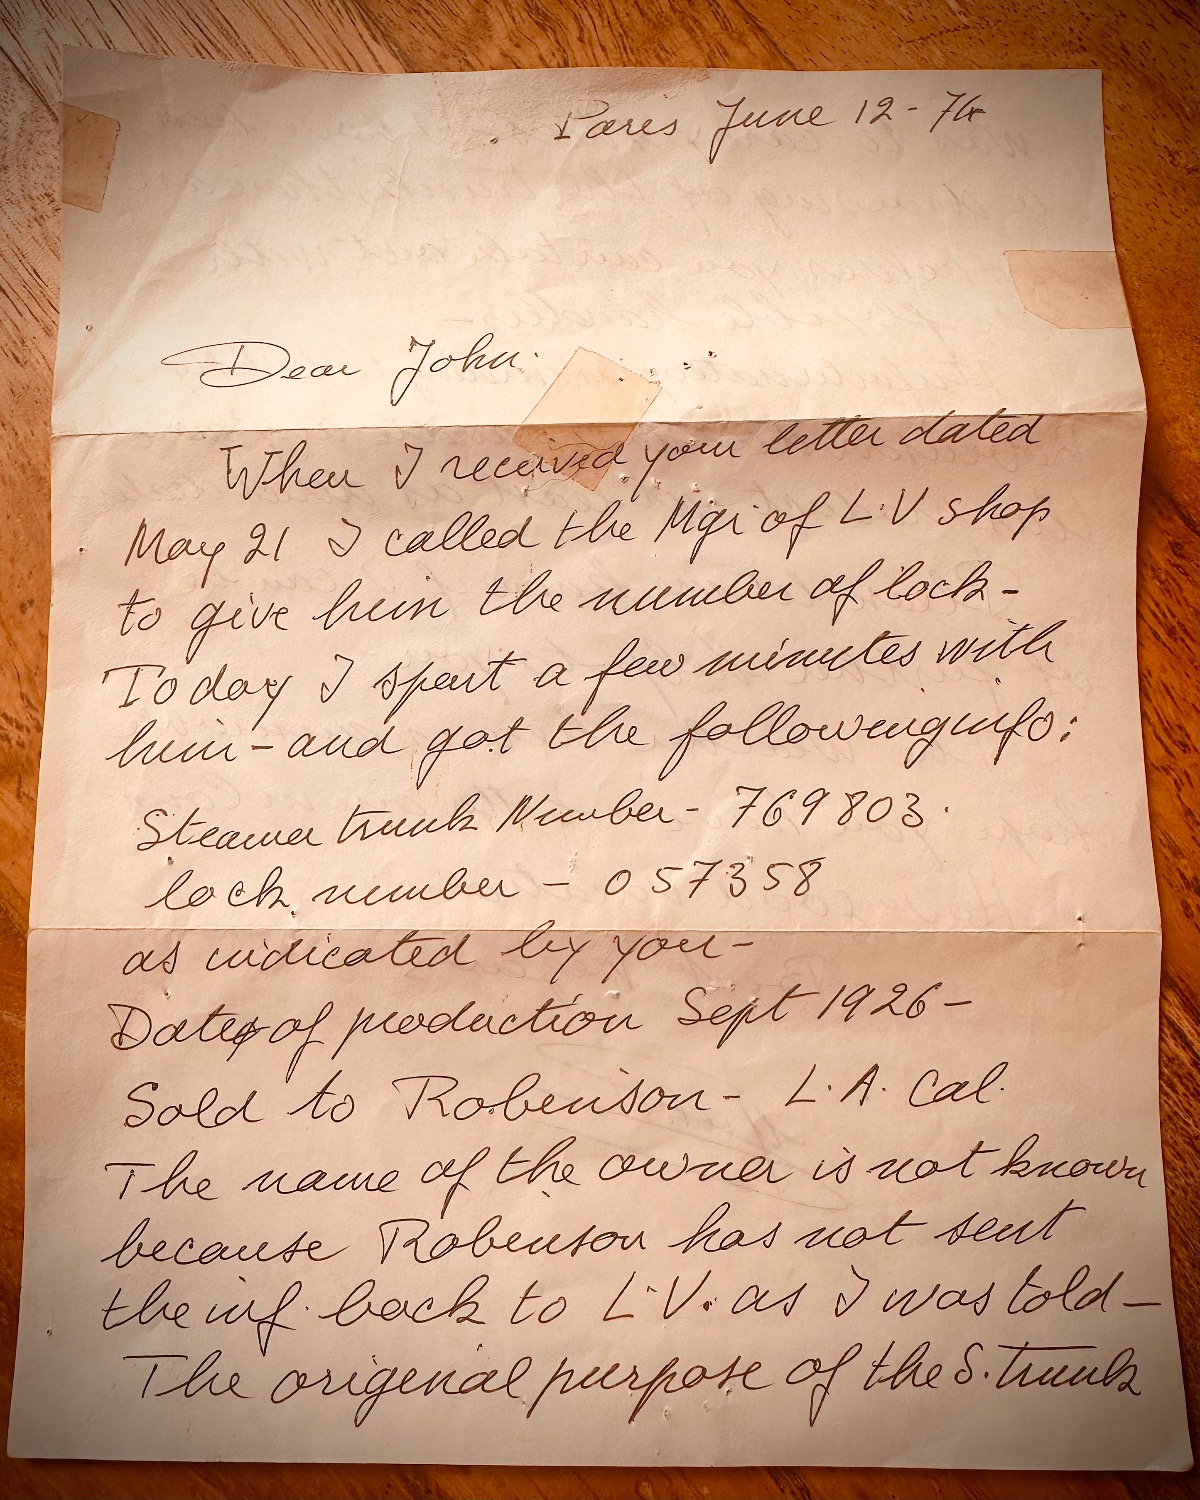 Paris June 12-74
Dear John.
When I received your letter dated
May 21 I called the Mgr of L.V shop
to give him the number of lock-
Today I spent a few minutes with
him-and got the following info:
Steamer trunk Number- 769803.
lock number - 057358
as indicated by you-
Date of production Sept 1926-
Sold to Robenison- L.A. Cal.
The name of the owner is not known
because Robenison has not sent
the inf. back to L.V. as I was told-
The origenal purpose of the S.trunk